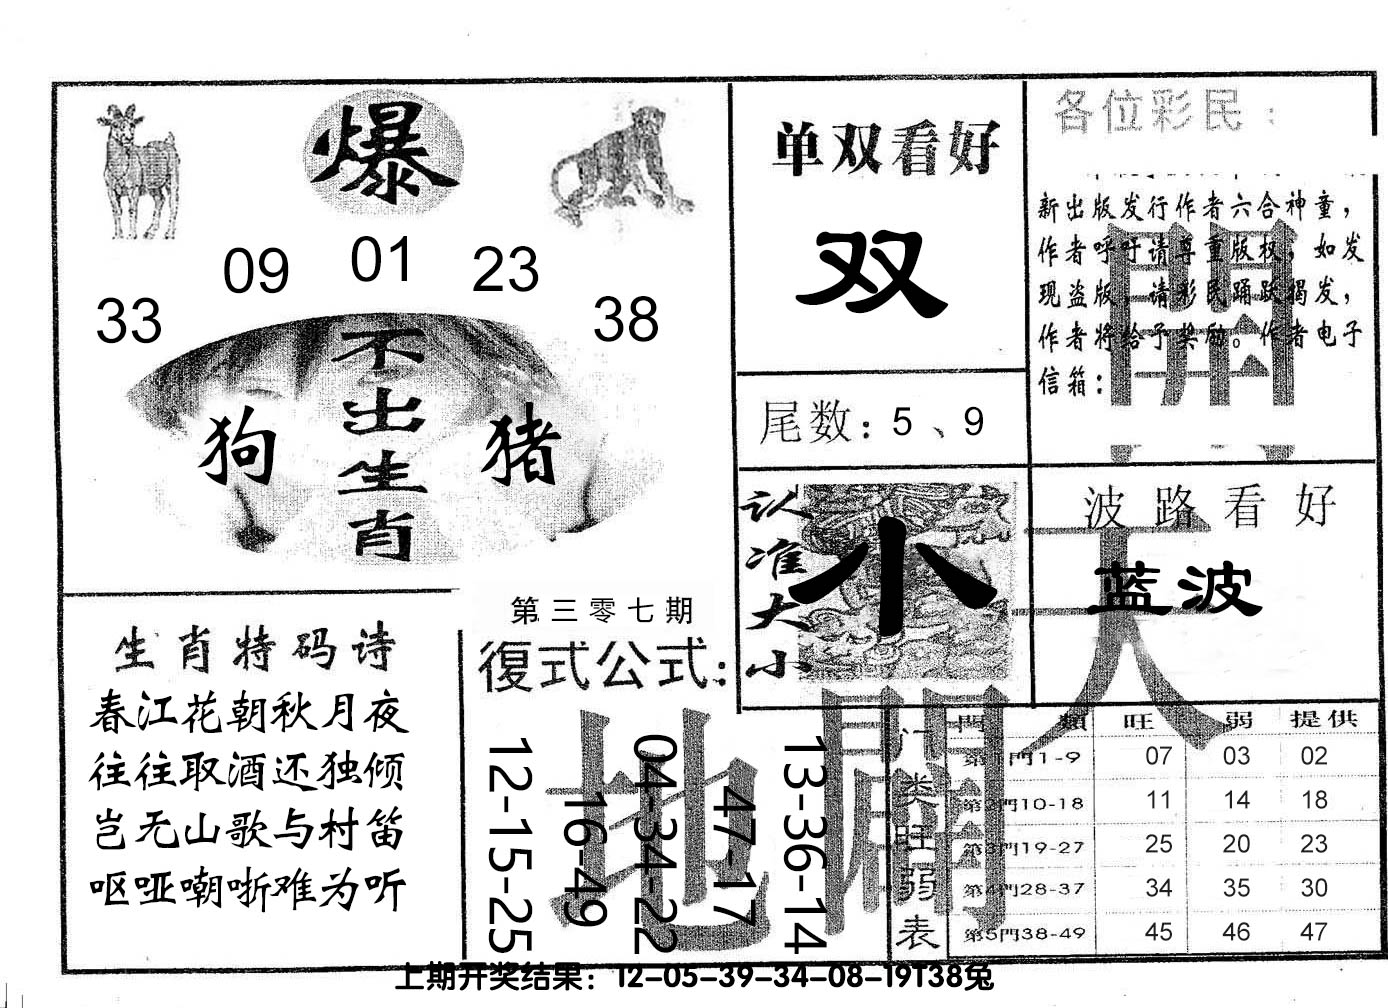 爆
33 09 01 23 38
不出生肖
狗 猪
单双看好
双
尾数：5 、9
各位彩民：
新出版发行作者六合神童，
作者呼吁请尊重版权，如发
现盗版，请彩民踊跃揭发，
作者将给予奖励。作者电子
信箱：
認准大小
小
波路看好
蓝波
生肖特码诗
春江花朝秋月夜
往往取酒还独倾
岂无山歌与村笛
呕哑嘲哳难为听
第三零七期
復式公式：
12-15-25
16-49
04-34-22
47-17
13-36-14
天地
門類 旺 弱 提供
门类旺弱表
第1門1-9 07 03 02
第2門10-18 11 14 18
第3門19-27 25 20 23
第4門28-37 34 35 30
第5門38-49 45 46 47
上期开奖结果：12-05-39-34-08-19T38兔